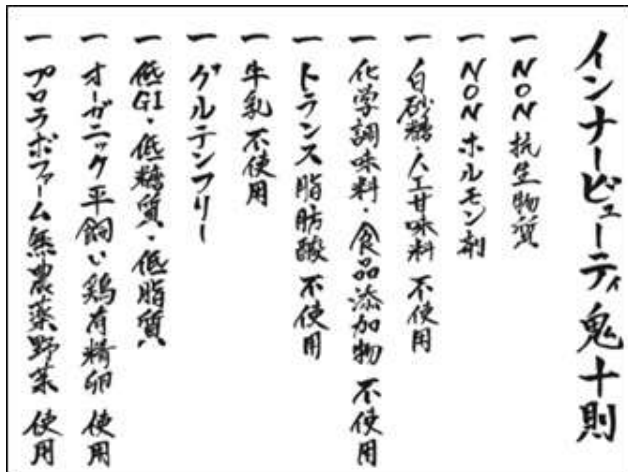 インナービューティ鬼十則
一 NON抗生物質
一 NONホルモン剤
一 白砂糖・人工甘味料 不使用
一 化学調味料・食品添加物 不使用
一 トランス脂肪酸 不使用
一 牛乳 不使用
一 グルテンフリー
一 低GI・低糖質・低脂質
一 オーガニック平飼い鶏有精卵 使用
一 プロラボファーム無農薬野菜 使用